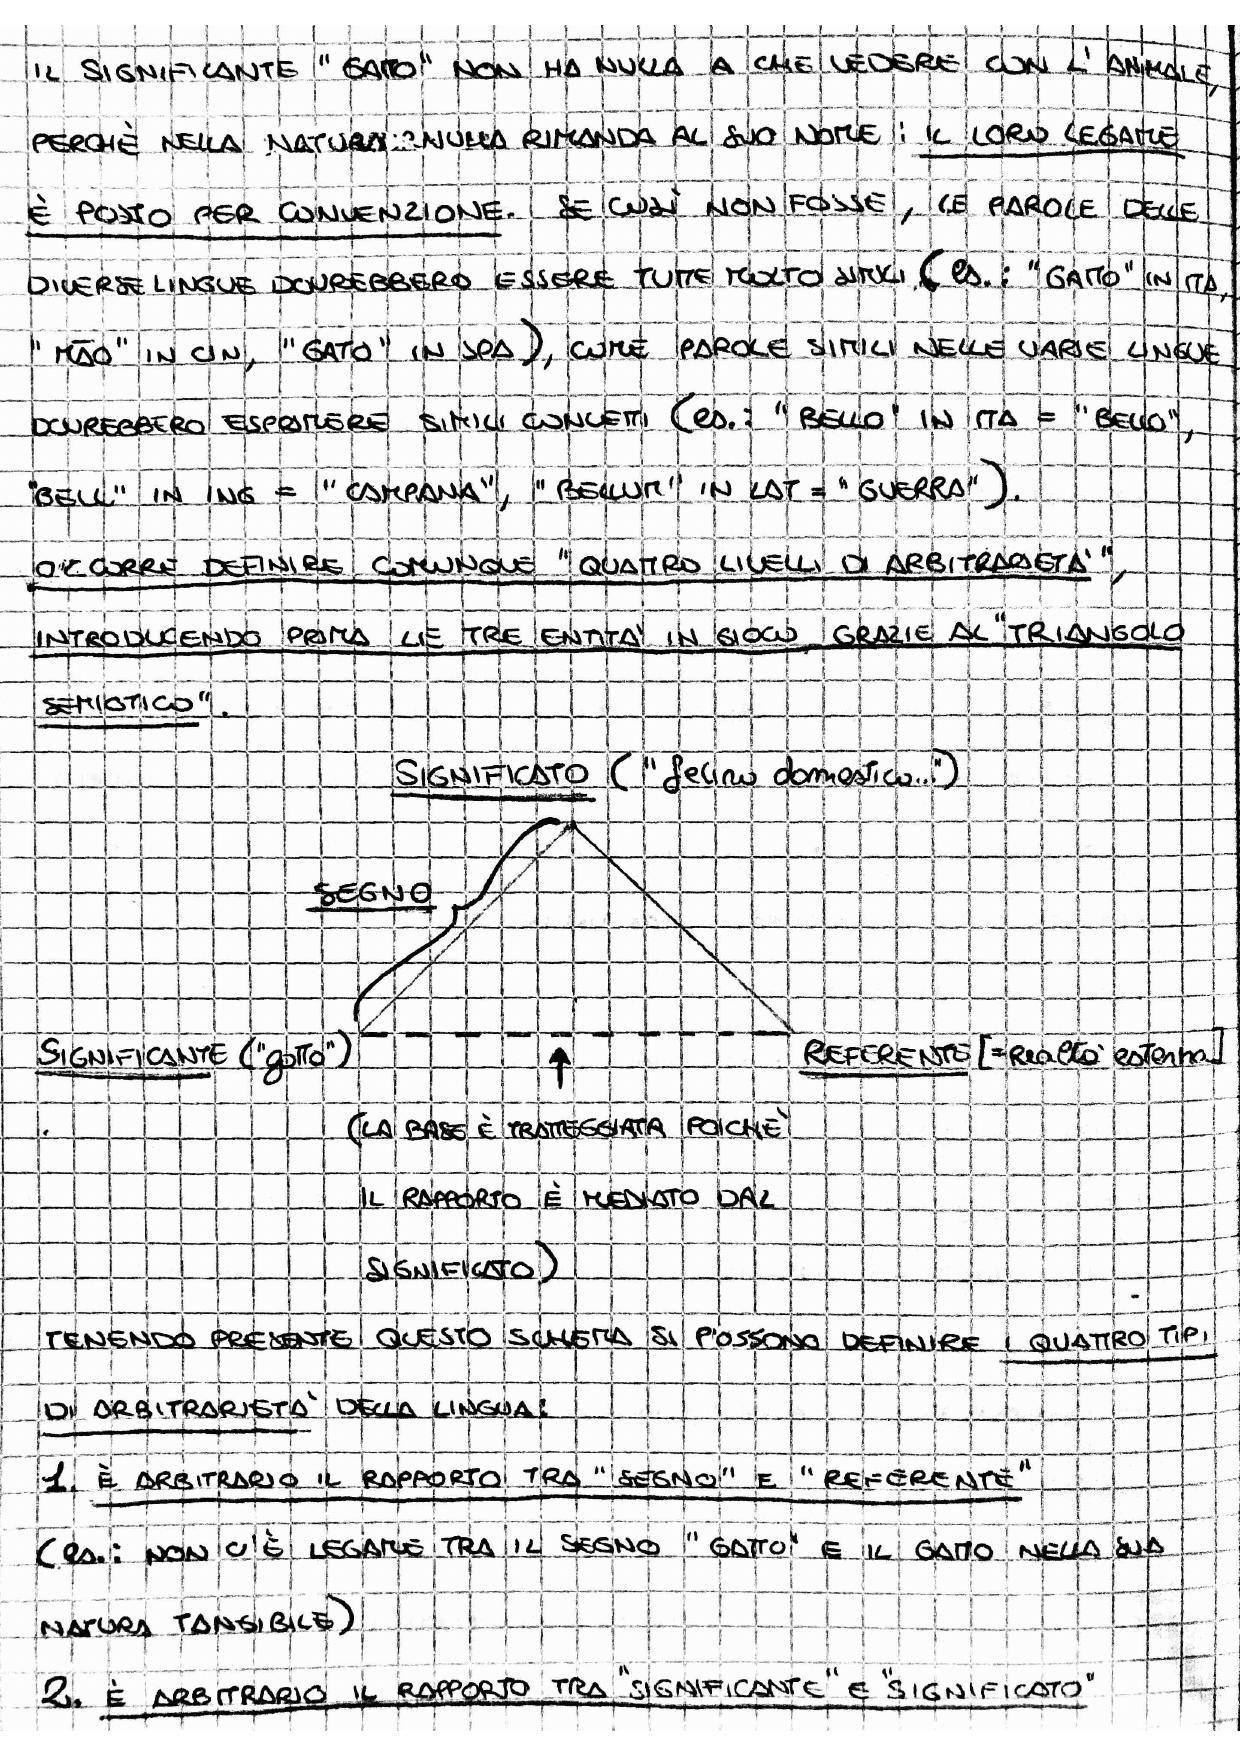 IL SIGNIFICANTE "GATTO" NON HA NULLA A CHE VEDERE CON L'ANIMALE,
PERCHÈ NELLA NATURA NULLA RIMANDA AL SUO NOME: IL LORO LEGAME
È POSTO PER CONVENZIONE. SE COSÌ NON FOSSE, LE PAROLE DELLE
DIVERSE LINGUE DOVREBBERO ESSERE TUTTE MOLTO SIMILI (es.: "GATTO" IN ITA,
"MĀO" IN CIN, "GATO" IN SPA), COME PAROLE SIMILI NELLE VARIE LINGUE
DOVREBBERO ESPRIMERE SIMILI CONCETTI (es.: "BELLO" IN ITA = "BELLO",
"BELL" IN ING = "CAMPANA", "BELLUM" IN LAT = "GUERRA").
OCCORRE DEFINIRE COMUNQUE "QUATTRO LIVELLI DI ARBITRARIETA'",
INTRODUCENDO PRIMA LE TRE ENTITA' IN GIOCO GRAZIE AL "TRIANGOLO
SEMIOTICO".
SIGNIFICATO ("felino domestico...")
SEGNO
SIGNIFICANTE ("gatto")
REFERENTE [=realtà esterna]
(LA BASE È TRATTEGGIATA POICHÈ
IL RAPPORTO È MEDIATO DAL
SIGNIFICATO)
TENENDO PRESENTE QUESTO SCHEMA SI POSSONO DEFINIRE I QUATTRO TIPI
DI ARBITRARIETA' DELLA LINGUA:
1. È ARBITRARIO IL RAPPORTO TRA "SEGNO" E "REFERENTE"
(es.: NON C'È LEGAME TRA IL SEGNO "GATTO" E IL GATTO NELLA SUA
NATURA TANGIBILE)
2. È ARBITRARIO IL RAPPORTO TRA "SIGNIFICANTE" E "SIGNIFICATO"